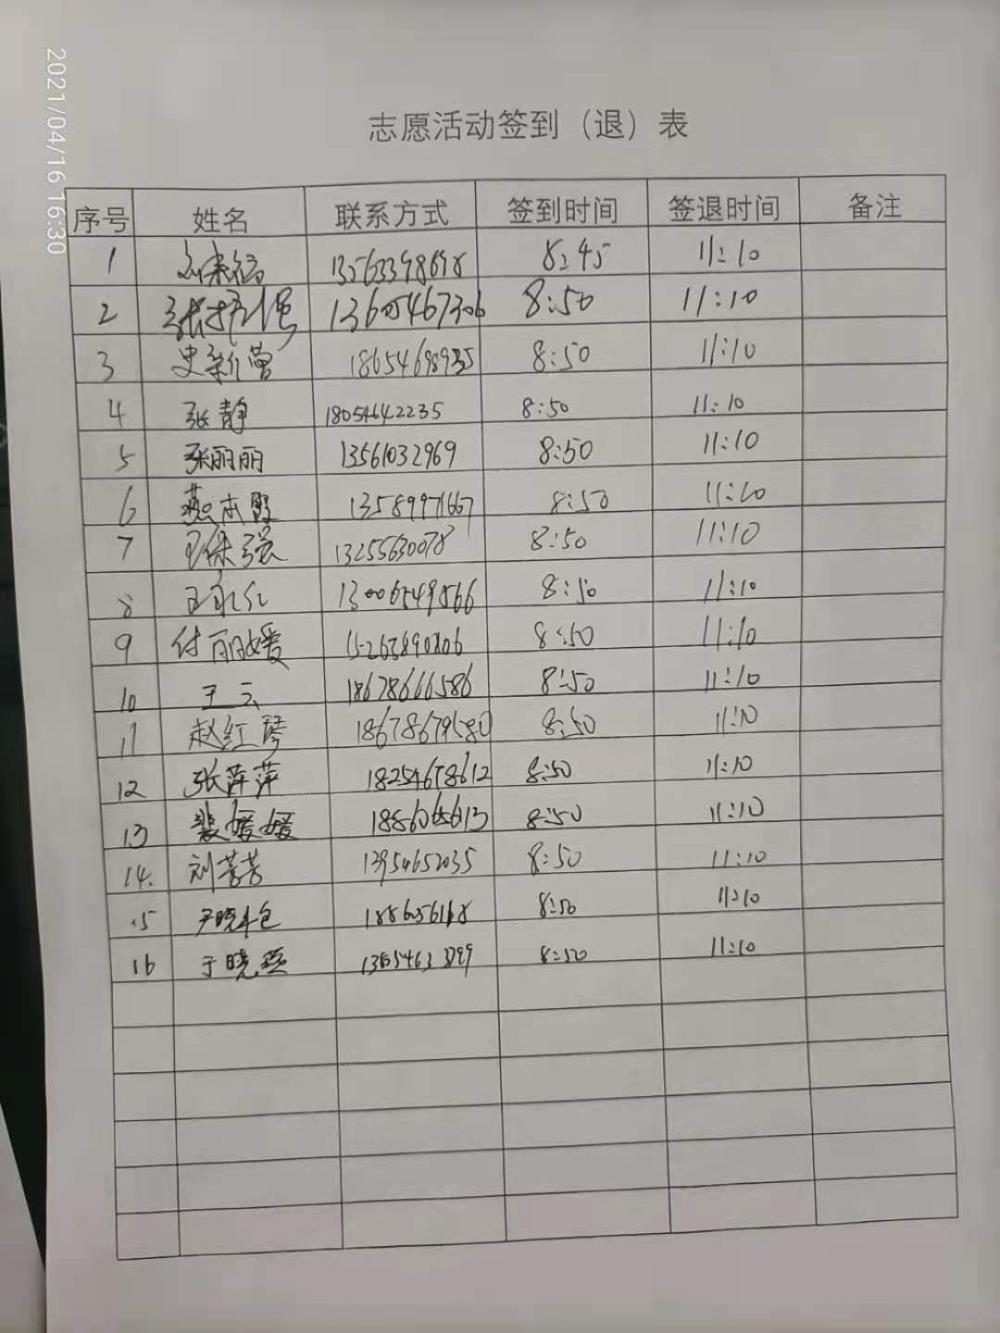 2021/04/16 16:30
志愿活动签到（退）表
序号 姓名 联系方式 签到时间 签退时间 备注
1 8:45 11:10
2 13605467306 8:50 11:10
3 史新营 18654698935 8:50 11:10
4 张静 18054642235 8:50 11:10
5 张丽丽 13561032969 8:50 11:10
6 燕本霞 13589971667 8:50 11:10
7 王保强 13255630078 8:50 11:10
8 王永红 13006549566 8:50 11:10
9 付丽媛 8:50 11:10
10 王云 18678666586 8:50 11:10
11 赵红琴 18678679580 8:50 11:10
12 张萍萍 18254678612 8:50 11:10
13 裴媛媛 8:50 11:10
14. 刘芳芳 13954652035 8:50 11:10
15 8:50 11:10
16 于晓燕 8:50 11:10